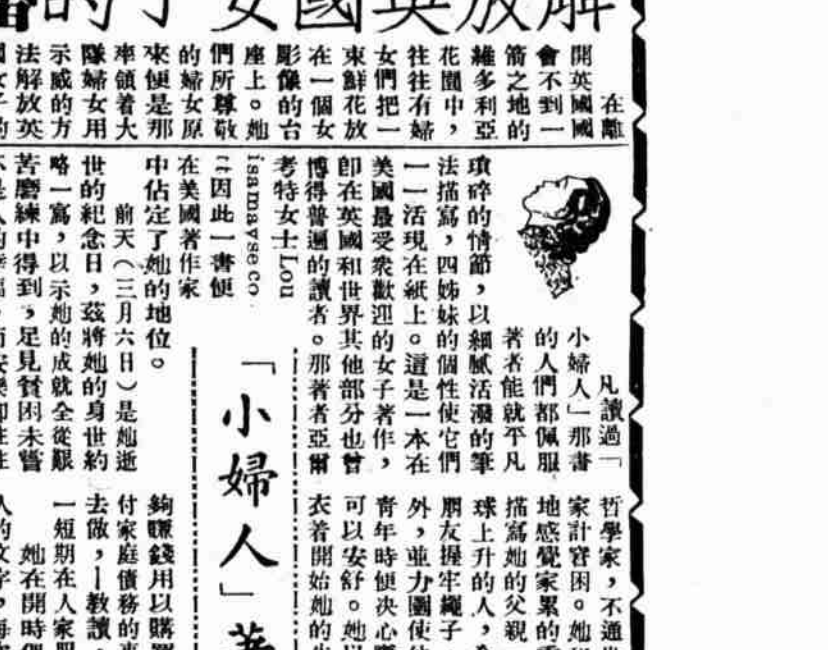 解放英國女子的
在離
開英國國
會不到一
箭之地的
維多利亞
花園中，
往往有婦
女們把一
束鮮花放
在一個女
彫像的台
座上。她
們所尊敬
的婦女原
來便是那
率領着大
隊婦女用
示威的方
法解放英
凡讀過「
小婦人」那書
的人們都佩服
著者能就平凡
瑣碎的情節，以細膩活潑的筆
法描寫，四姊妹的個性使它們
一一活現在紙上。這是一本在
美國最受衆歡迎的女子著作，
卽在英國和世界其他部分也曾
博得普遍的讀者。那著者亞爾
考特女士 Lou
isamayse co
tt因此一書便
在美國著作家
中佔定了她的地位。
前天（三月六日）是她逝
世的紀念日，茲將她的身世約
略一寫，以示她的成就全從艱
苦磨練中得到，足見貧困未嘗
「小婦人」著
哲學家，不通
家計窘困。她
地感覺家累的
描寫她的父親
球上升的人，
朋友握牢繩子
外，並力圖使
靑年時便決心
可以安舒。她
衣着開始她的
夠賺錢用以購
付家庭債務的
去做，—教讀，
一短期在人家
她在閒時
人的文字，每